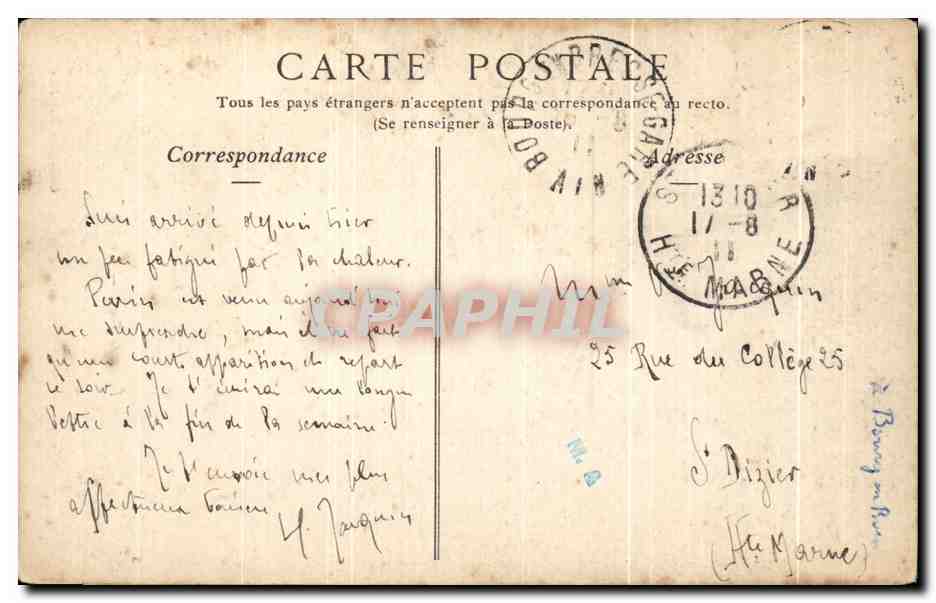 CARTE POSTALE
Tous les pays étrangers n'acceptent pas la correspondance au recto.
(Se renseigner à la Poste).
Correspondance
Adresse
Suis arrivé depuis hier
un peu fatigué par la chaleur.
est venu aujourd'hui
me surprendre, mais il ne fait
qu'une courte apparition et repart
ce soir. Je t'écrirai une longue
lettre à la fin de la semaine.
Je t'envoie mes plus
affectueux baisers
H. Jacquin
Mme Jacquin
25 Rue du Collège 25
St Dizier
(Hte Marne)
à Bourg en Bresse
BOURG GARE
AIN
13 10
17 -8
11
Hte MARNE
M. A
CPAPHIL